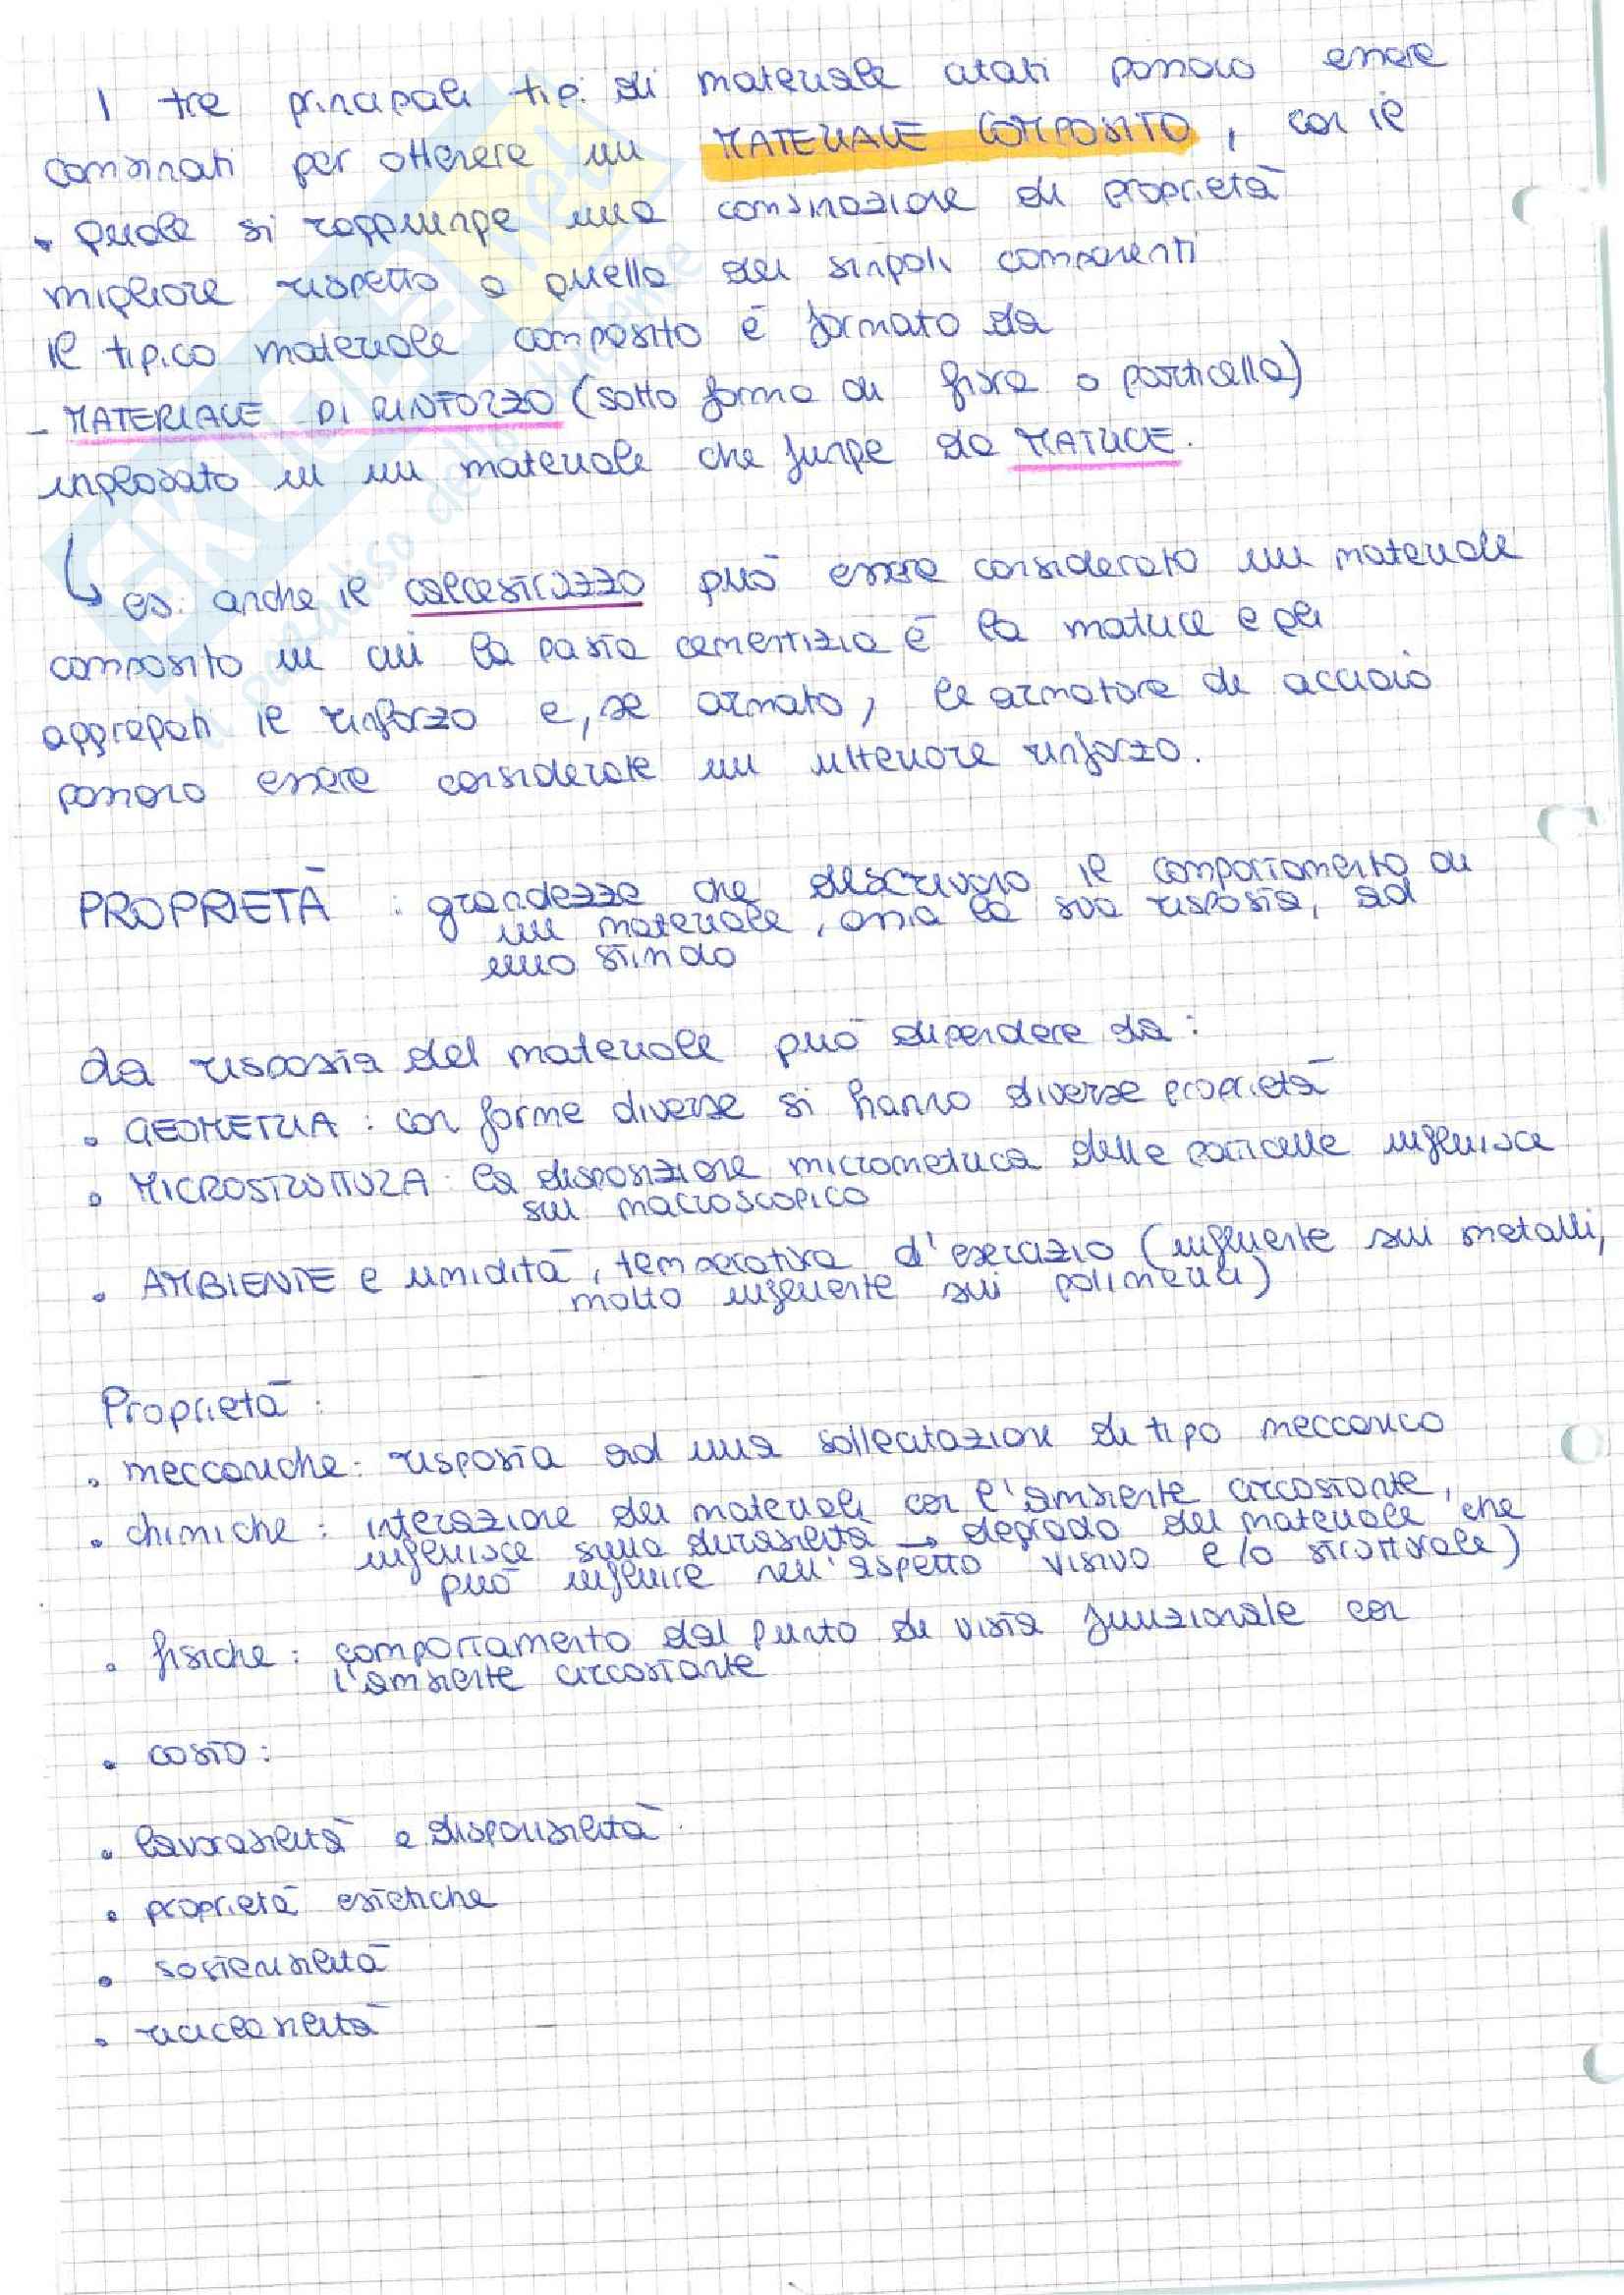 I tre principali tipi di materiale citati possono essere
combinati per ottenere un MATERIALE COMPOSITO, con il
quale si raggiunge una combinazione di proprietà
migliore rispetto a quella dei singoli componenti
Il tipico materiale composito è formato da
- MATERIALE DI RINFORZO (sotto forma di fibra o particella)
inglobato in un materiale che funge da MATRICE.
↳ es. anche il calcestruzzo può essere considerato un materiale
composito in cui la pasta cementizia è la matrice e gli
aggregati il rinforzo e, se armato, le armature di acciaio
possono essere considerate un ulteriore rinforzo.
PROPRIETÀ : grandezze che descrivono il comportamento di
un materiale, ossia la sua risposta, ad
uno stimolo
La risposta del materiale può dipendere da:
• GEOMETRIA : con forme diverse si hanno diverse proprietà
• MICROSTRUTTURA : la disposizione micrometrica delle particelle influisce
sul macroscopico
• AMBIENTE e umidità, temperatura d'esercizio (influente sui metalli,
molto influente sui polimerici)
Proprietà:
• meccaniche: risposta ad una sollecitazione di tipo meccanico
• chimiche: interazione dei materiali con l'ambiente circostante,
influisce sulla durabilità → degrado del materiale che
può influire nell'aspetto visivo e/o strutturale)
• fisiche: comportamento dal punto di vista funzionale con
l'ambiente circostante
• costo:
• lavorabilità e disponibilità.
• proprietà estetiche
• sostenibilità
• riciclabilità
skuola.net
il paradiso dello studente